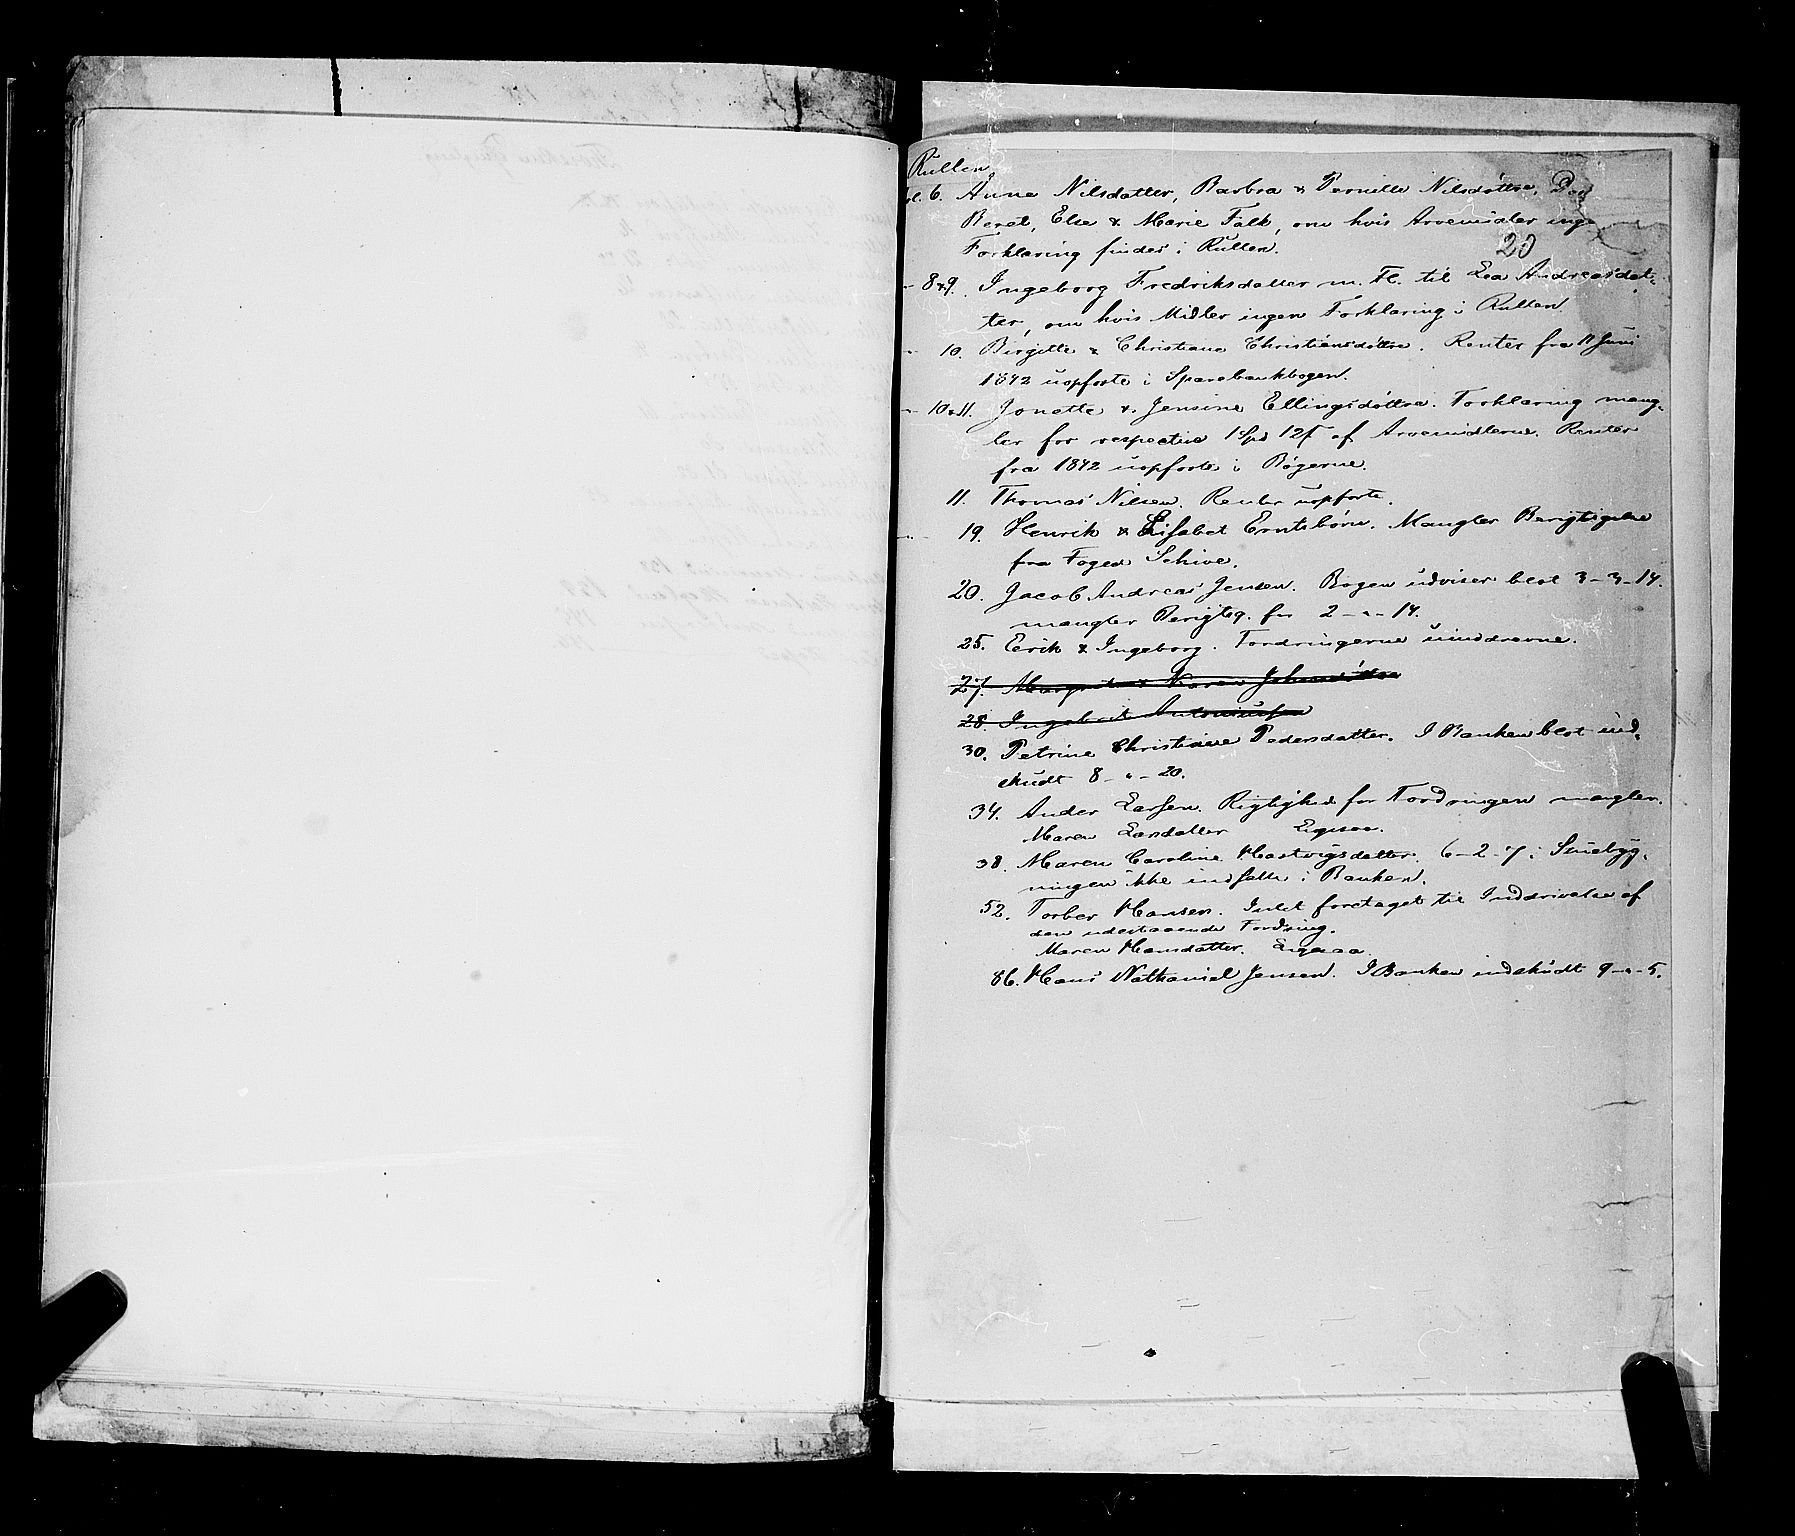 Rullen
6. Anne Nilsdatter, Barbra & Pernille Nilsdøttre,
Beret, Else & Marie Falk, om hvis Arvemidler inge
Forklaring findes i Rullen.
20
8&9. Ingeborg Fredriksdatter m. Fl. til Lea Andreasdat-
ter, om hvis Midler ingen Forklaring i Rullen.
10. Birgitte & Christiane Christiansdøttre. Renter fra 11 Juni
1842 uopførte i Sparebankbogen.
10&11. Jonette & Jensine Ellingsdøttre. Forklaring mang-
ler for respective 1 Spd 12 f af Arvemidlerne. Renter
fra 1842 uopførte i Bøgerne.
11. Thomas Nilsen. Renter uopførte.
19. Henrik & Lisabet Erntsbørn. Mangler Berigtigelse
fra Foged Schive.
20. Jacob Andreas Jensen. Bogen udviser blot 3-3-14.
mangler Berigtig. for 2 - " - 14.
25. Erik & Ingeborg. Fordringerne uinddrevne.
27. Karen
28. Ingebrit Antoniussen
30. Petrine Christiane Pedersdatter. I Banken blot ind-
skudt 8 - " - 20.
34. Ander Larsen. Rigtighed for Fordringen mangler.
Maren Larsdatter Ligesaa.
38. Maren Caroline Hartvigsdatter. 6-2-7 i
ningen ikke indsatte i Banken.
52. Torber Hansen. Intet foretaget til Inddrivelse af
den udestaaende Fordring.
Maren Hansdatter. Ligesaa.
86. Hans Nathaniel Jensen. I Banken indskudt 9 - " - 5.